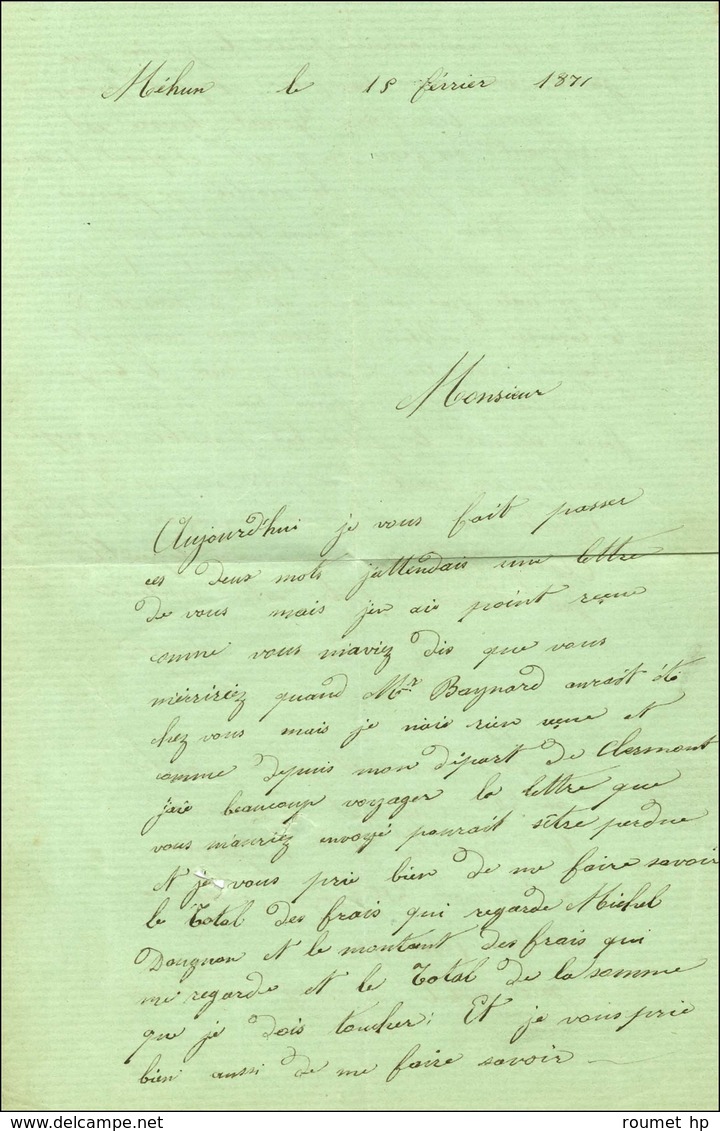 Méhun le 15 février 1871
Monsieur
Aujourd'hui je vous fait passer
ces deux mots jattendais une lettre
de vous mais jen aie point reçue
comme vous maviez dis que vous
mérririez quand Mr Baynard aurait été
chez vous mais je naie rien reçue et
comme depuis mon départ de Clermont
jaie beaucoup voyager la lettre que
vous mauriez envoyé pourait sêtre perdue
et je vous prie bien de me faire savoir
le Total des frais qui regarde Michel
Dougnon et le montant des frais qui
me regarde et le Total de la somme
que je dois toucher; Et je vous prie
bien aussi de me faire savoir
roumet hp